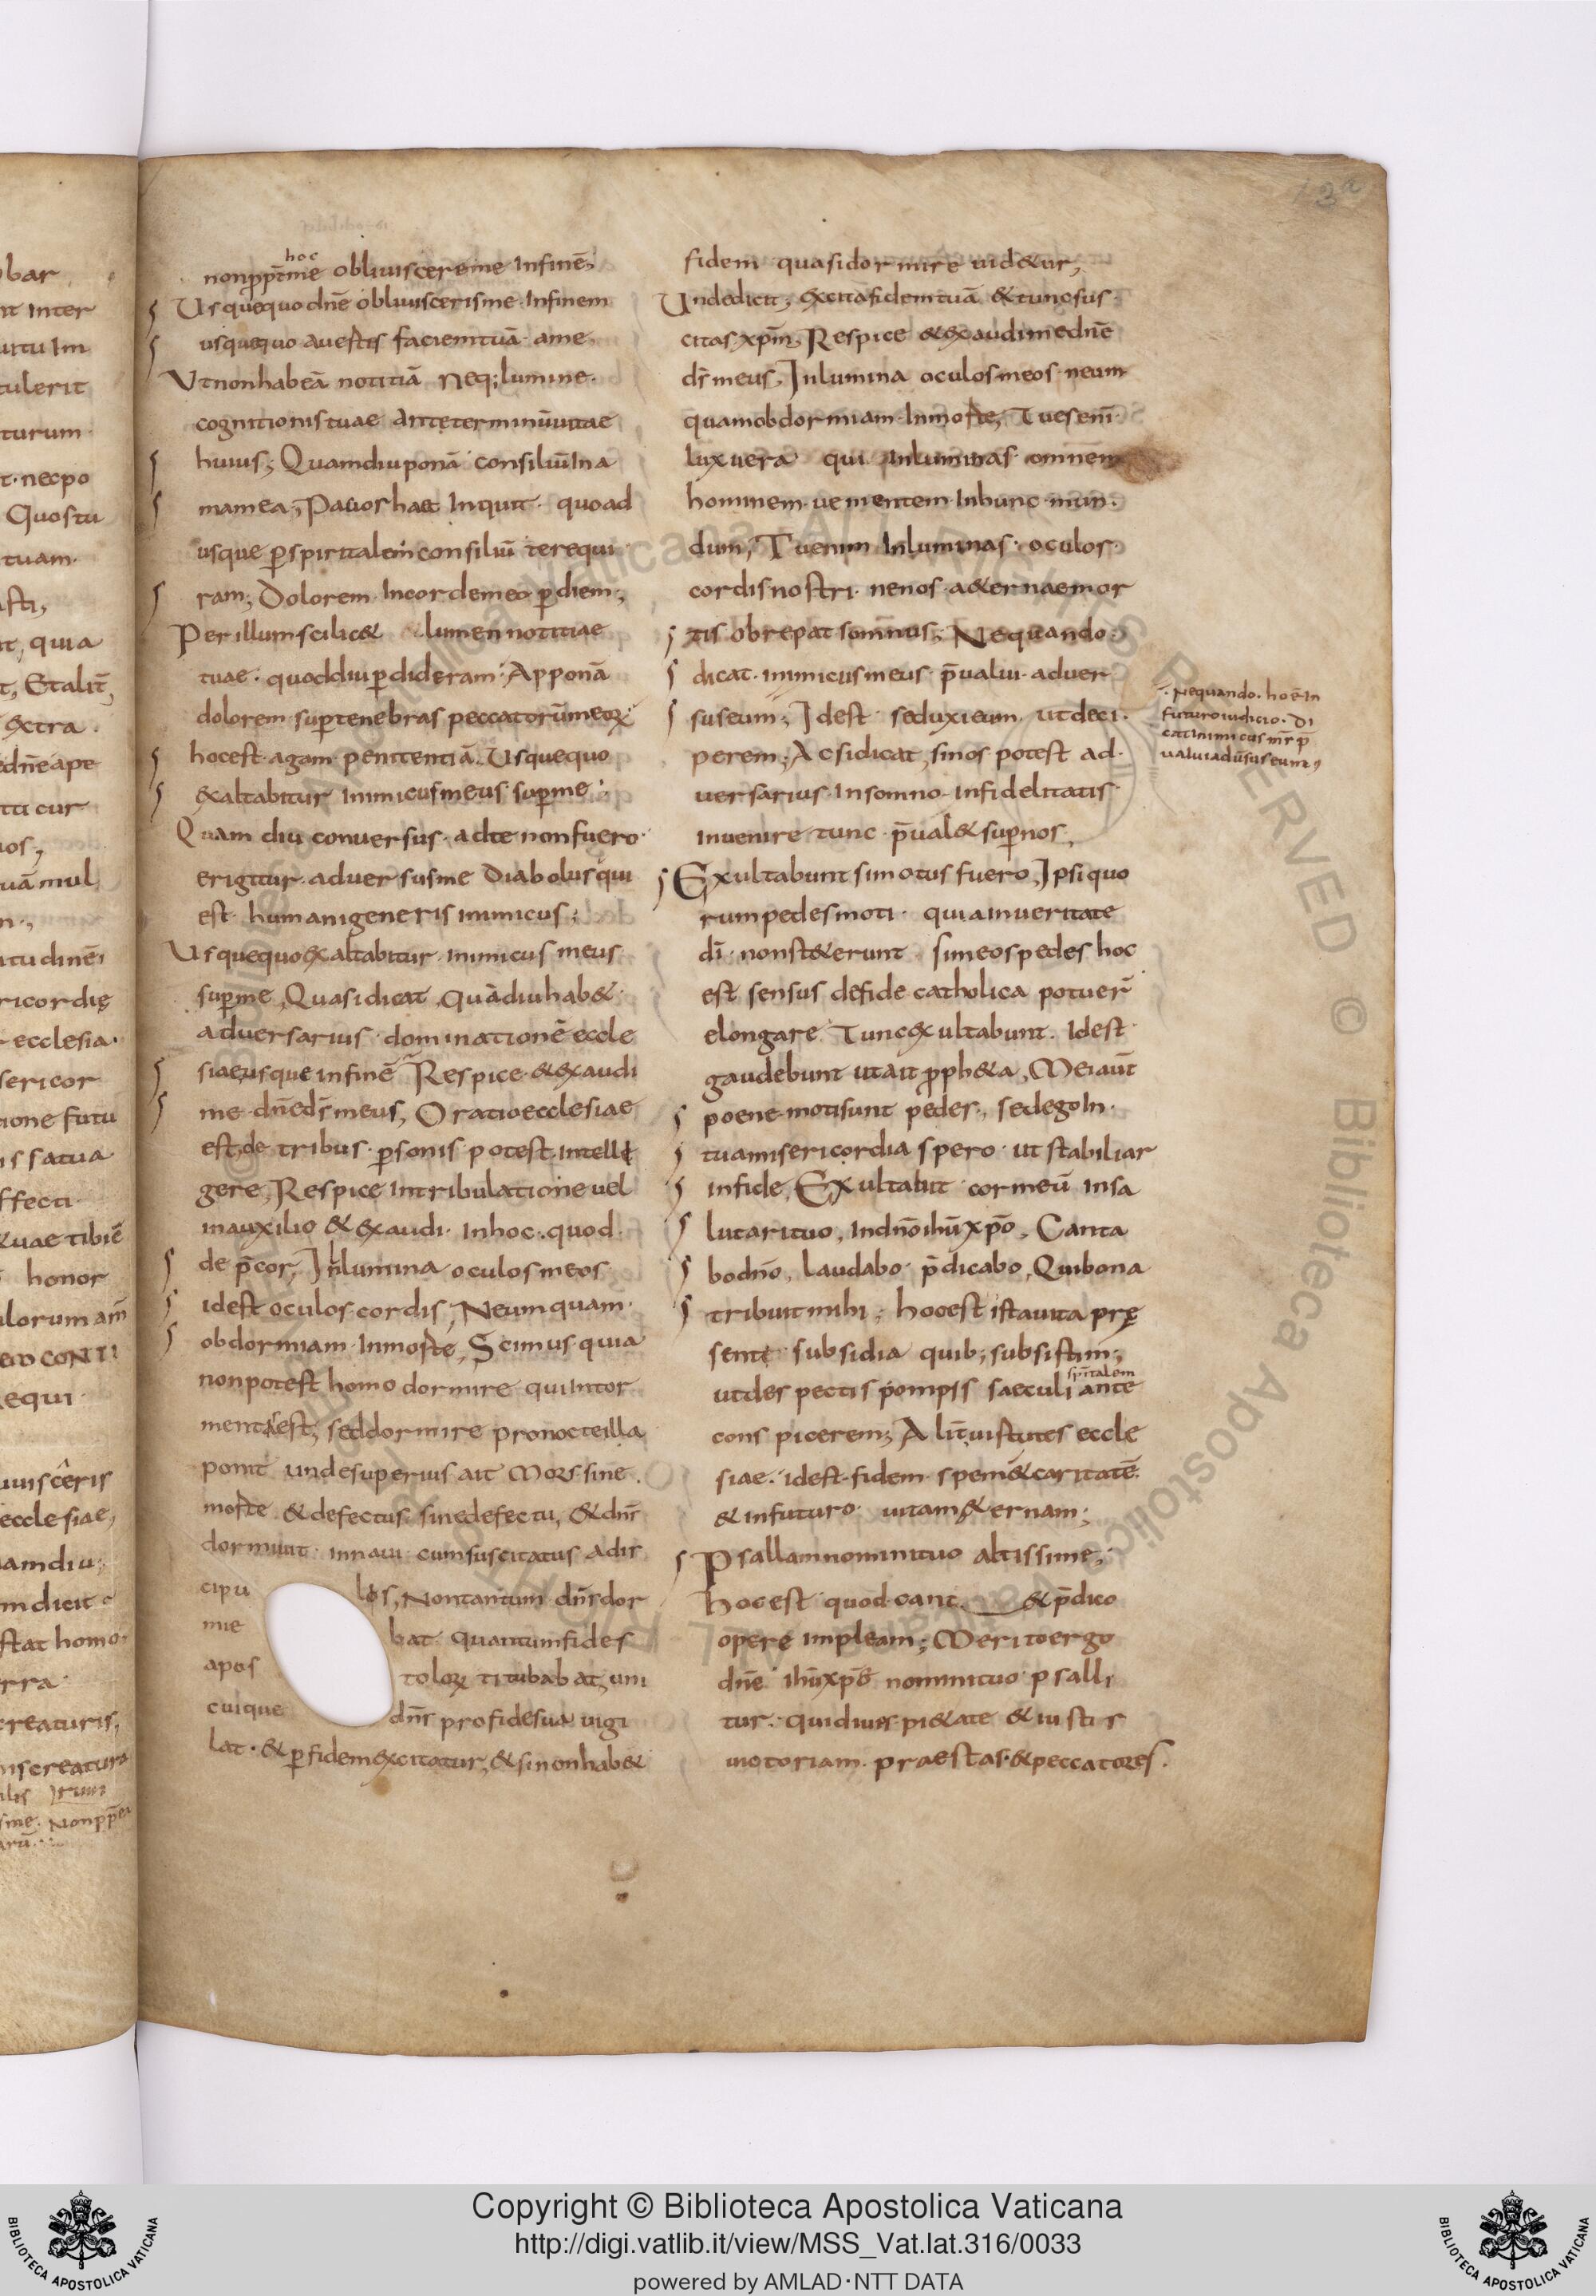 3a
hoc
nonpptme obliuisceremeInfinē;
Usquequo dnē obliuiscerisme Infinem
usquequo auertis faciemtuā ame,
Vtnonhabeā notitiā Neq; lumine
cognitionistuae anteterminūuitae
huius; Quamdiuponā consiliūIna
mamea; Pauorhaec Inquit quoad
usque pspiritalem consiliū terequi
ram; Dolorem Incordemeo pdiem;
Perillumscilic& lumennotitiae
tuae quoddiupdideram Apponā
dolorem suptenebras peccatorūmeoꝝ
hocest agam penitentiā. Usquequo
exaltabitur Inimicusmeus supme;
Quam diu conuersus adte nonfuero
erigitur aduersusme diabolusqui
est humanigenerisinimicus;
Usquequoexaltabitur inimicus meus
supme, Quasidicat, Quādiuhab&
aduersarius dominationē eccle
siaeusqueinfinē Respice &exaudi
me dnēdsmeus, Oratioecclesiae
est,de tribus psonis potest intelle
gere, Respice Intribulatione uel
inauxilio &exaudi Inhoc quod
de pcor, Inlumina oculosmeos
idest oculos cordis, Neumquam
obdormiam Inmorte, Scimus quia
nonpotest homo dormire quiIntor
mentisest, seddormire pronocteilla
ponit undesuperius ait Mors sine
morte & defectus sinedefectu, &dnr
dormiuit Innaui cumsuscitatus adis
cipu lis, Nontantum dnsdor
mie bat quantumfides
apos toloꝝ titubabat, uni
cuique dnr profidesua uigi
lat &pfidemexcitatur, &sinonhab&
fidem quasidormire uid&ur,
Undedicit, excitafidemtuā &tunosus
citasxpm, Respice &exaudimednē
ds meus, Inlumina oculosmeos neum
quamobdormiam Inmorte, Tuesenī
luxuera qui Inluminas omnem
hominem uenientem Inhunc mun
dum, Tuenim Inluminas oculos
cordisnostri nenos a&ernaemor
tis obrepat somnus, Nequando
dicat inimicusmeus pualui aduer
suseum, Idest seduxieum utdeci
perem, Acsidicat, sinos potest ad
uersarius Insomno Infidelitatis
Inuenire tunc pual& supnos,
Exultabuntsimotus fuero, Ipsiquo
rumpedesmoti quiainueritate
dī nonst&erunt simeospedes hoc
est sensus defide catholica potuer
elongare Tuncexultabunt Idest
gaudebunt utait pph&a, Meiaut
poene motisunt pedes, sedegoIn
tuamisericordia spero ut stabiliar
infide, Exultabit cormeū Insa
lutarituo, Indnōihūxpō, Canta
bodnō, laudabo pdicabo, Quibona
tribuitmihi; hocest istauita prę
sente subsidia quib; subsistim;
spitalem
utdes pectis pompis saeculi ante
cons picerem; Alit uirtutes eccle
siae. idest fidem spem&caritatē
& infuturo uitam&ernam;
Psallamnominituo altissime;
hocest quod cant &pdico
opere impleam; Meritoergo
dnē ihūxpē nominituo psalli
tur quidiues pi&ate & iustis
uictoriam praestas &peccatores
Nequando. hoēIn
futuroiudicio. di
catinimicus mr p
ualuiadūsuseum,
Copyright © Biblioteca Apostolica Vaticana
http://digi.vatlib.it/view/MSS_Vat.lat.316/0033
powered by AMLAD·NTT DATA
BIBLIOTECA APOSTOLICA VATICANA
BIBLIOTECA APOSTOLICA VATICANA